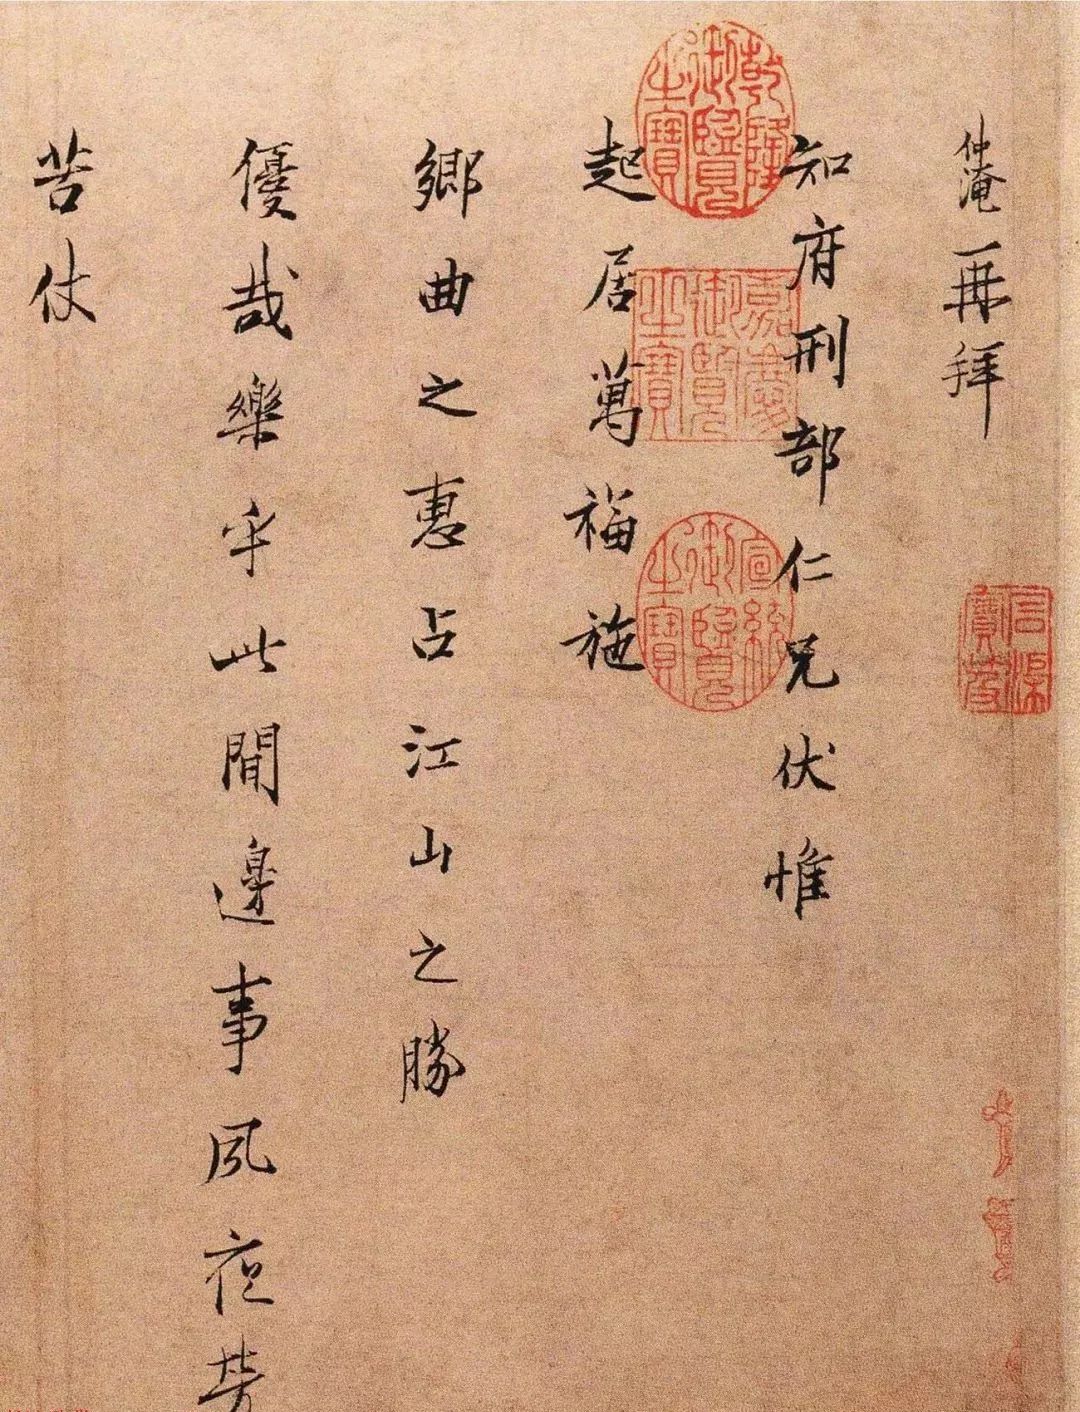 仲淹再拜
知府刑部仁兄伏惟
起居萬福施
鄉曲之惠占江山之勝
優哉樂乎此間邊事夙夜勞
苦仗
乾隆御覽之寶
嘉慶御覽之寶
宣統御覽之寶
石渠寶笈